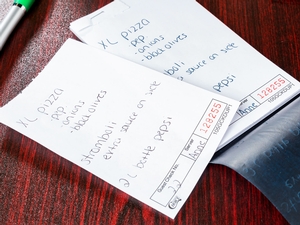 XL pizza
pep
onions
black olives
stromboli
extra sauce on side
2 L bottle pepsi
Guest Check No.
128255
XL pizza
pep
onions
black olives
sauce on side
pepsi
128255